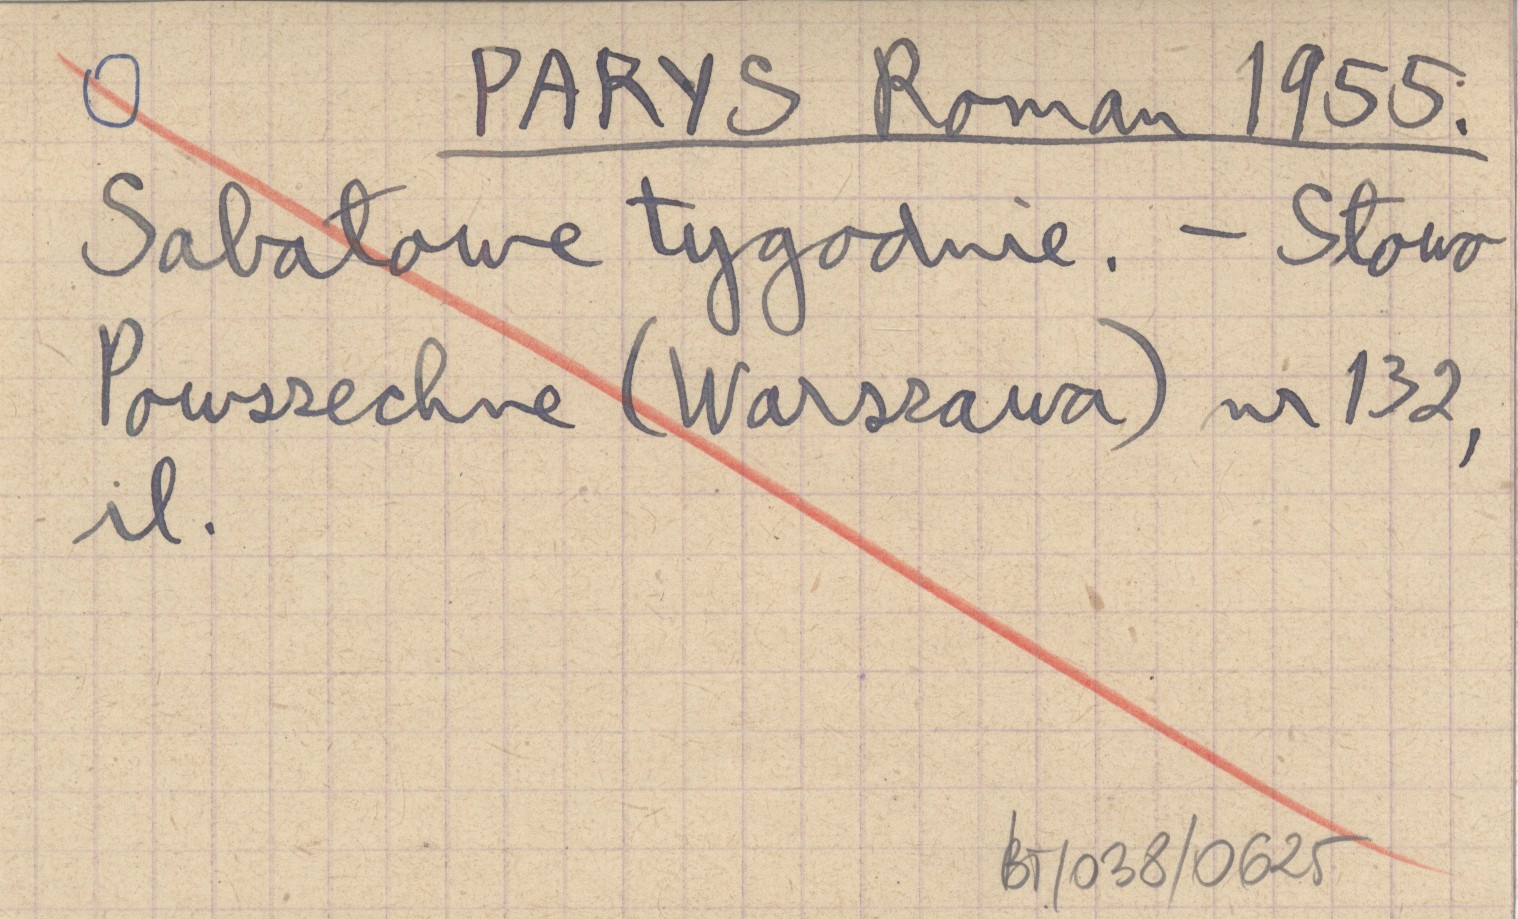 O PARYS Roman 1955.
Sabatowe tygodnie. – Słowo
Powszechne (Warszawa) nr 132,
il.
BT/038/0625